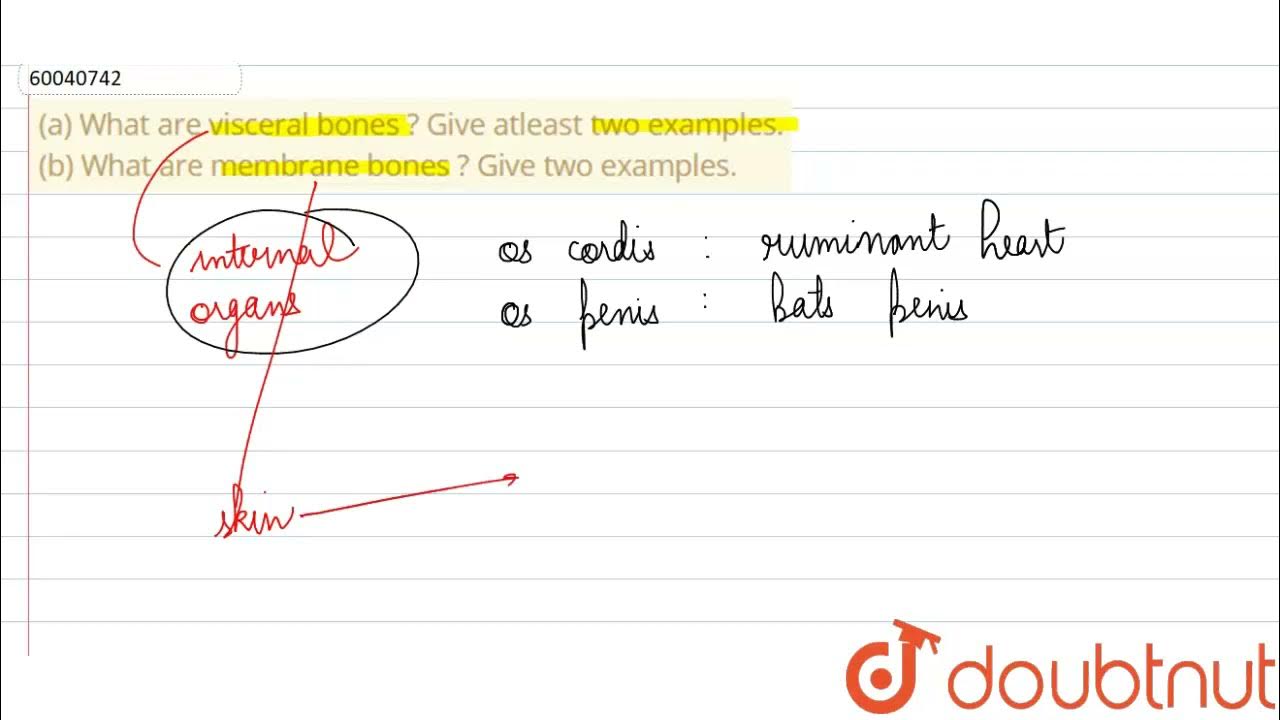 60040742
(a) What are visceral bones ? Give atleast two examples.
(b) What are membrane bones ? Give two examples.
internal os cordis : ruminant heart
organs os penis : bats penis
skin
doubtnut